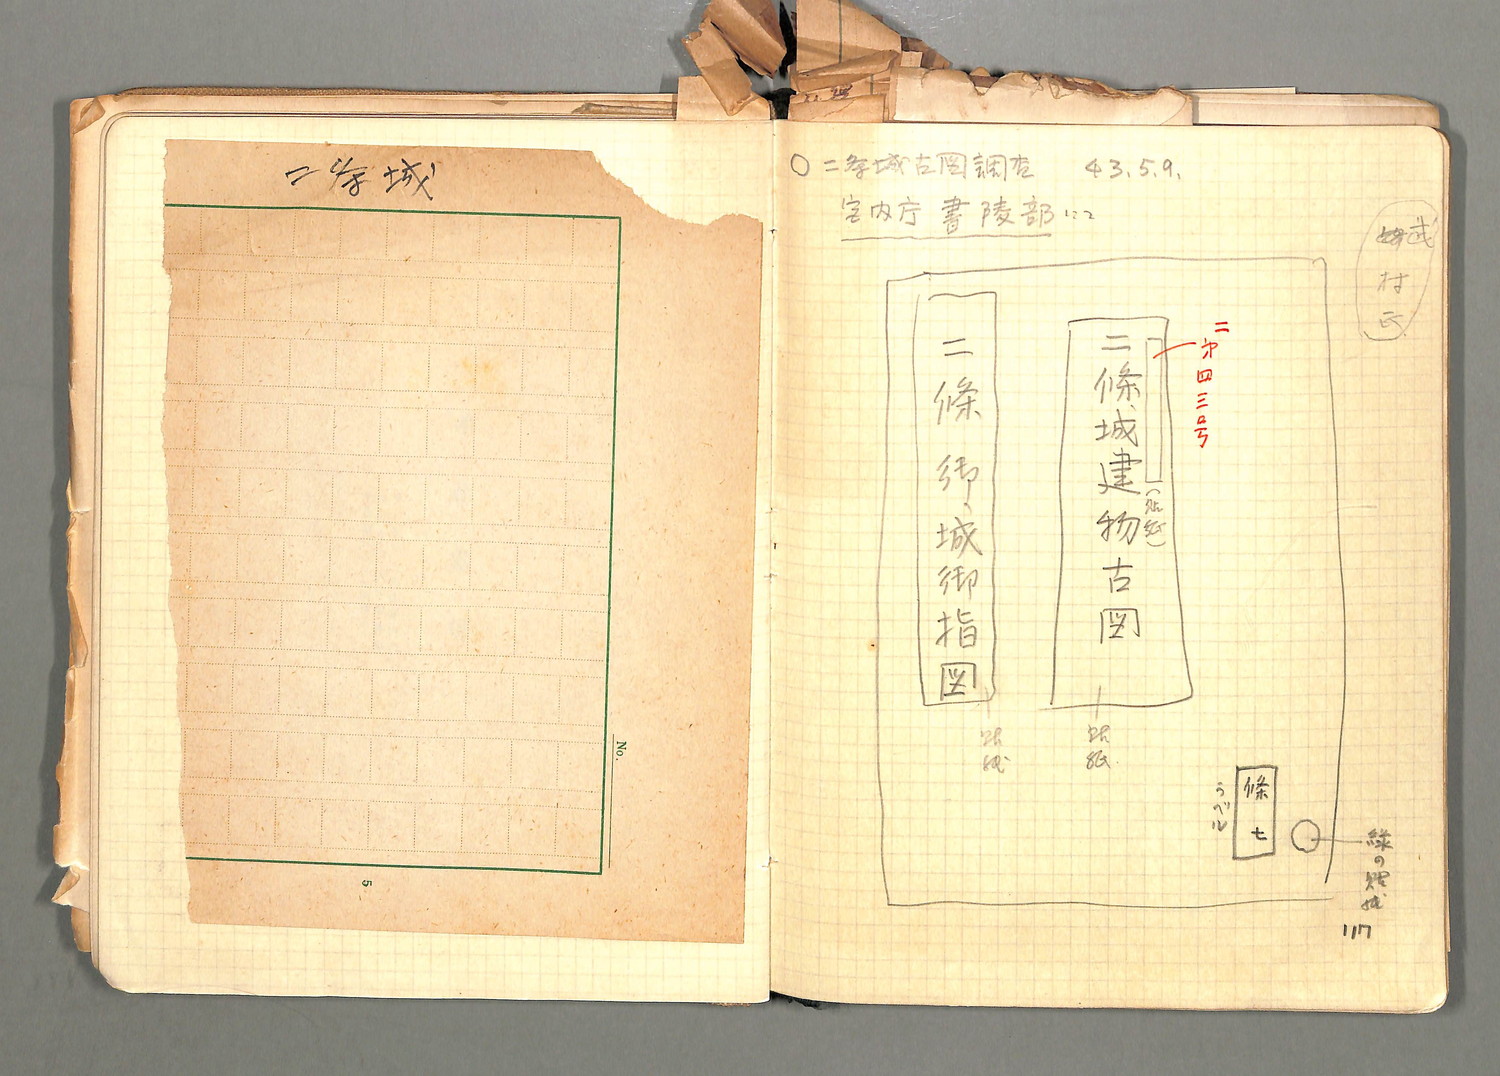 二条城
No.
5
○二条城古図調査 43.5.9.
宮内庁書陵部にて
村氏
二第四三号
二條城建物古図
(貼紙)
二條御城御指図
貼紙
貼紙
條七
ラベル
緑の貼紙
117